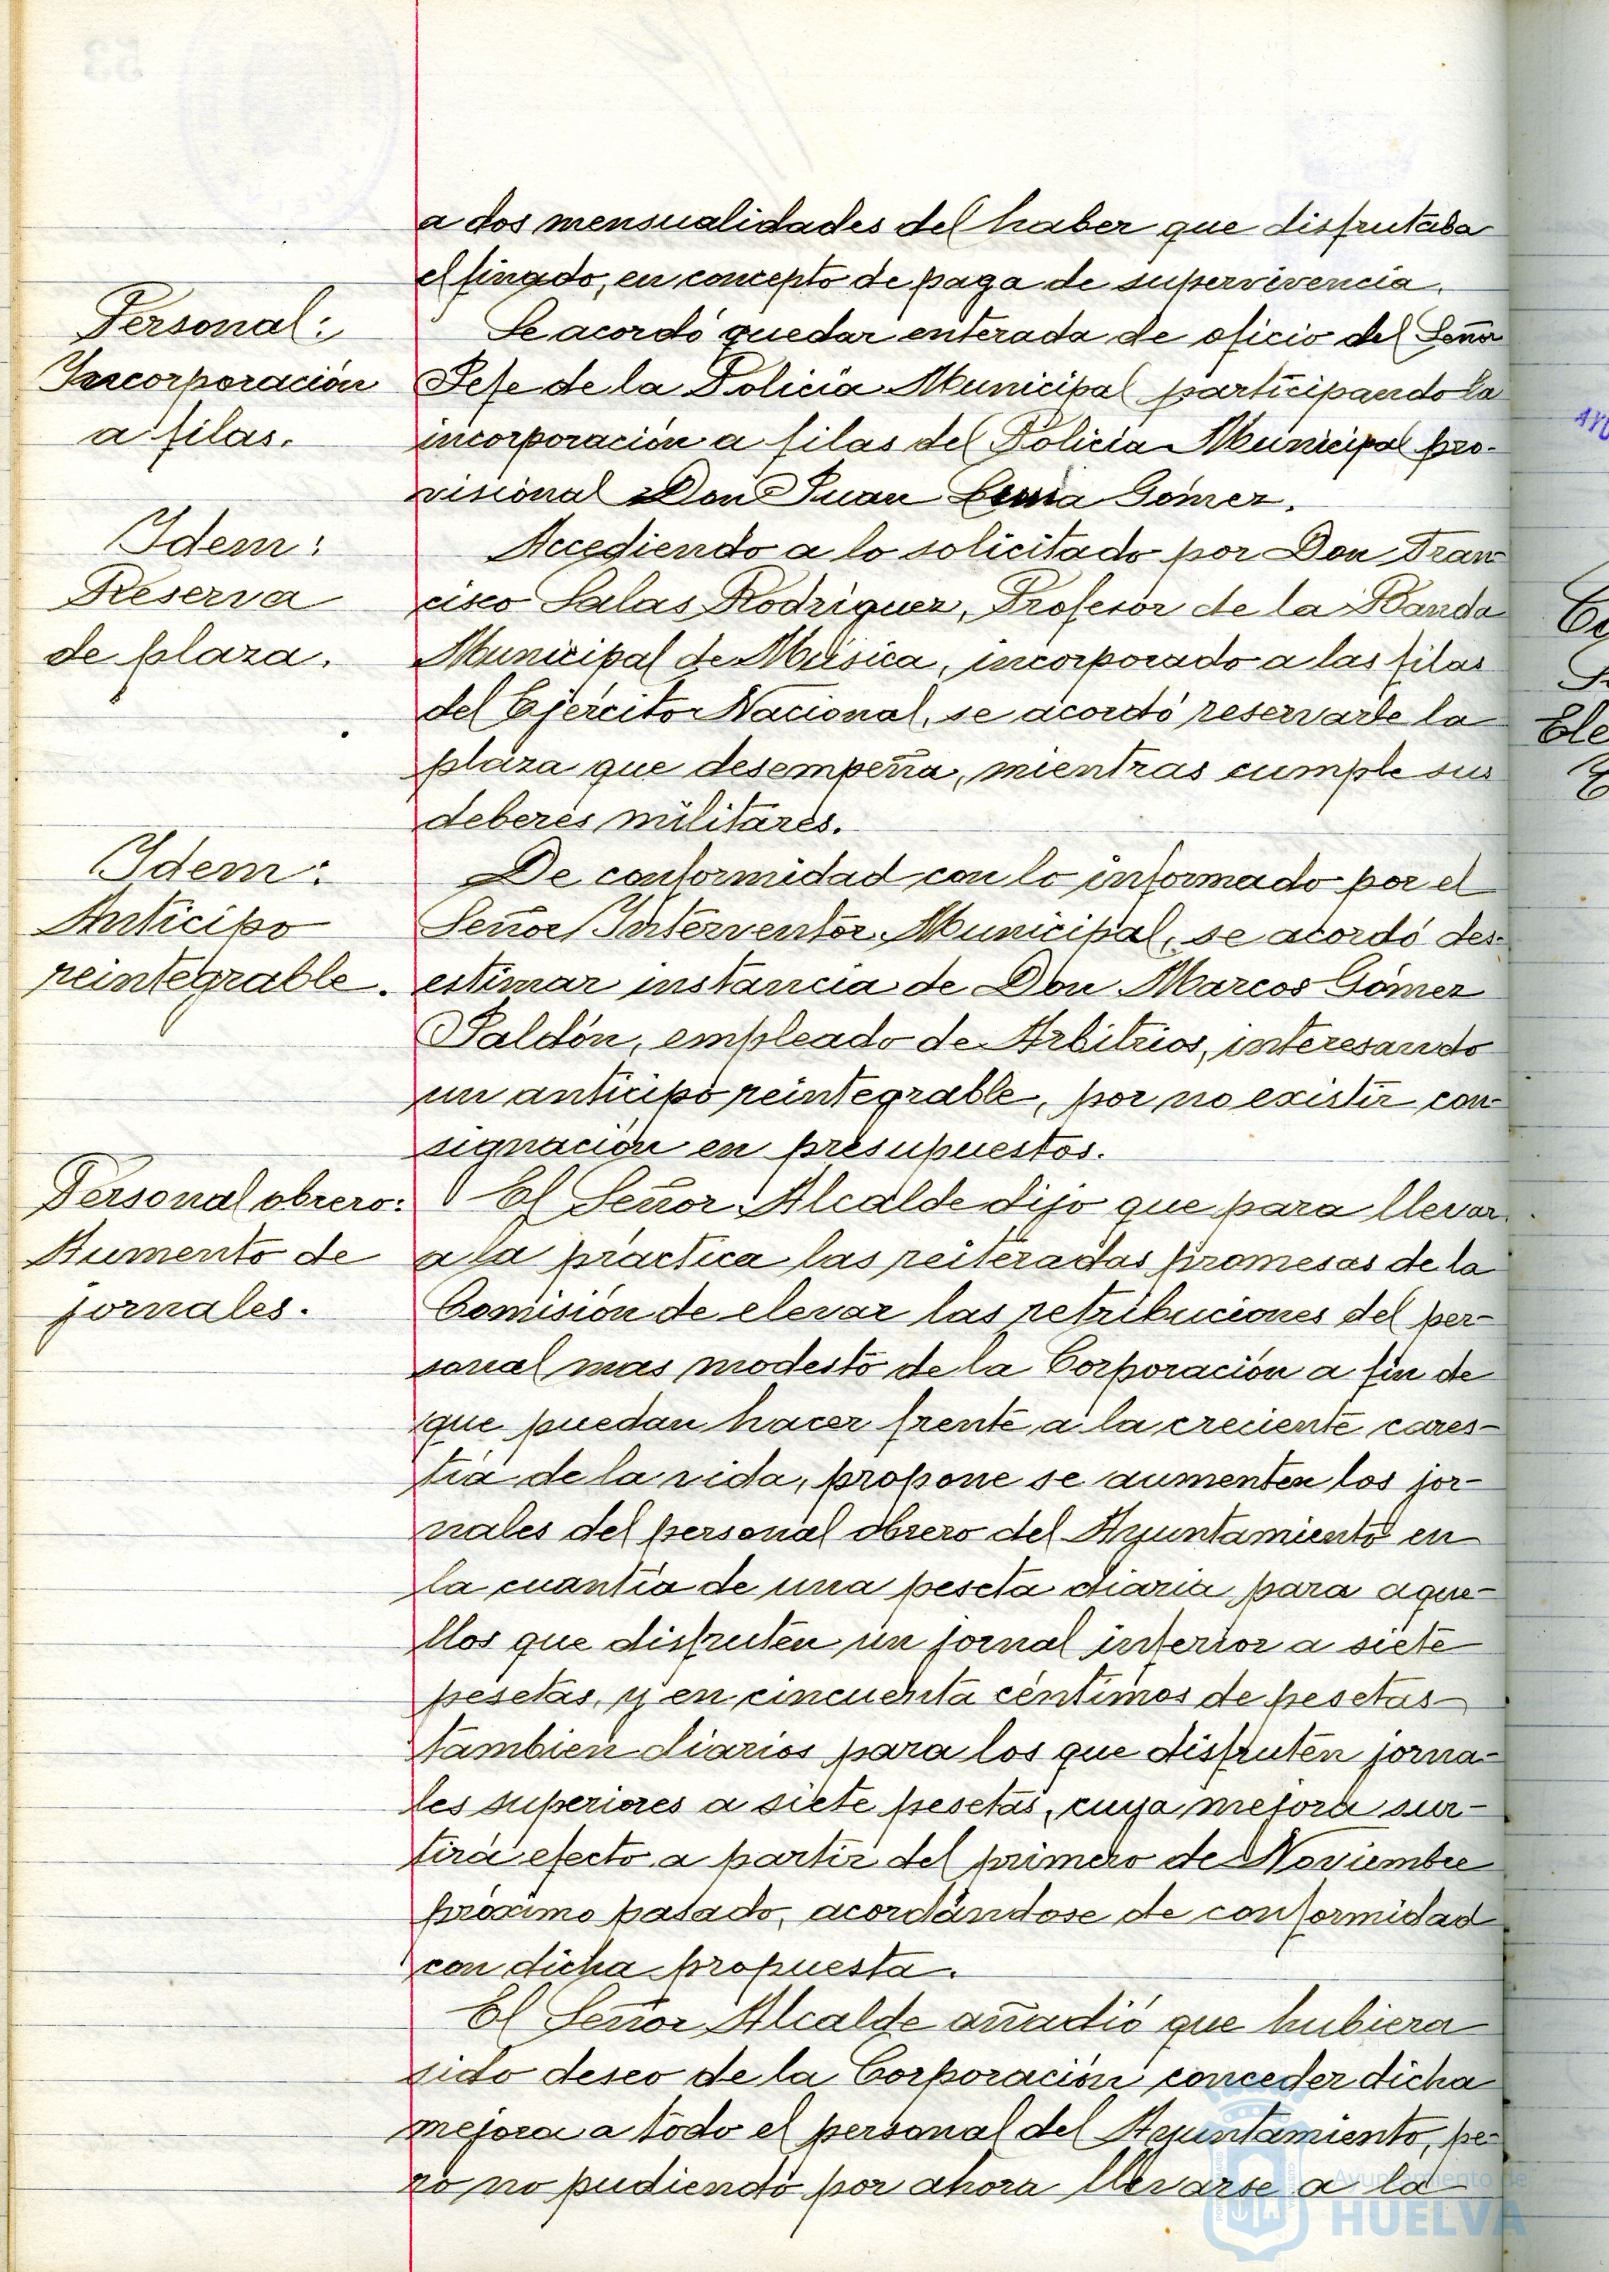 a dos mensualidades del haber que disfrutaba
el finado, en concepto de paga de supervivencia.
Personal:
Incorporación
a filas.
Se acordó quedar enterada de oficio del Señor
Jefe de la Policía Municipal participando la
incorporación a filas del Policía Municipal pro-
visional Don Juan Gómez.
Idem:
Reserva
de plaza.
Accediendo a lo solicitado por Don Fran-
cisco Salas Rodríguez, Profesor de la Banda
Municipal de Música, incorporado a las filas
del Ejército Nacional, se acordó reservarle la
plaza que desempeña, mientras cumple sus
deberes militares.
Idem:
Anticipo
reintegrable.
De conformidad con lo informado por el
Señor Interventor Municipal, se acordó des-
estimar instancia de Don Marcos Gómez
Saldón, empleado de Arbitrios, interesando
un anticipo reintegrable, por no existir con-
signación en presupuestos.
Personal obrero:
Aumento de
jornales.
El Señor Alcalde dijo que para llevar
a la práctica las reiteradas promesas de la
Comisión de elevar las retribuciones del per-
sonal mas modesto de la Corporación a fin de
que puedan hacer frente a la creciente cares-
tía de la vida, propone se aumenten los jor-
nales del personal obrero del Ayuntamiento en
la cuantía de una peseta diaria para aque-
llos que disfruten un jornal inferior a siete
pesetas, y en cincuenta céntimos de pesetas
tambien diarios para los que disfruten jorna-
les superiores a siete pesetas, cuya mejora sur-
tirá efecto a partir del primero de Noviembre
próximo pasado, acordándose de conformidad
con dicha propuesta.
El Señor Alcalde añadió que hubiera
sido deseo de la Corporación conceder dicha
mejora a todo el personal del Ayuntamiento, pe-
ro no pudiendo por ahora llevarse a la
Ayuntamiento de
HUELVA